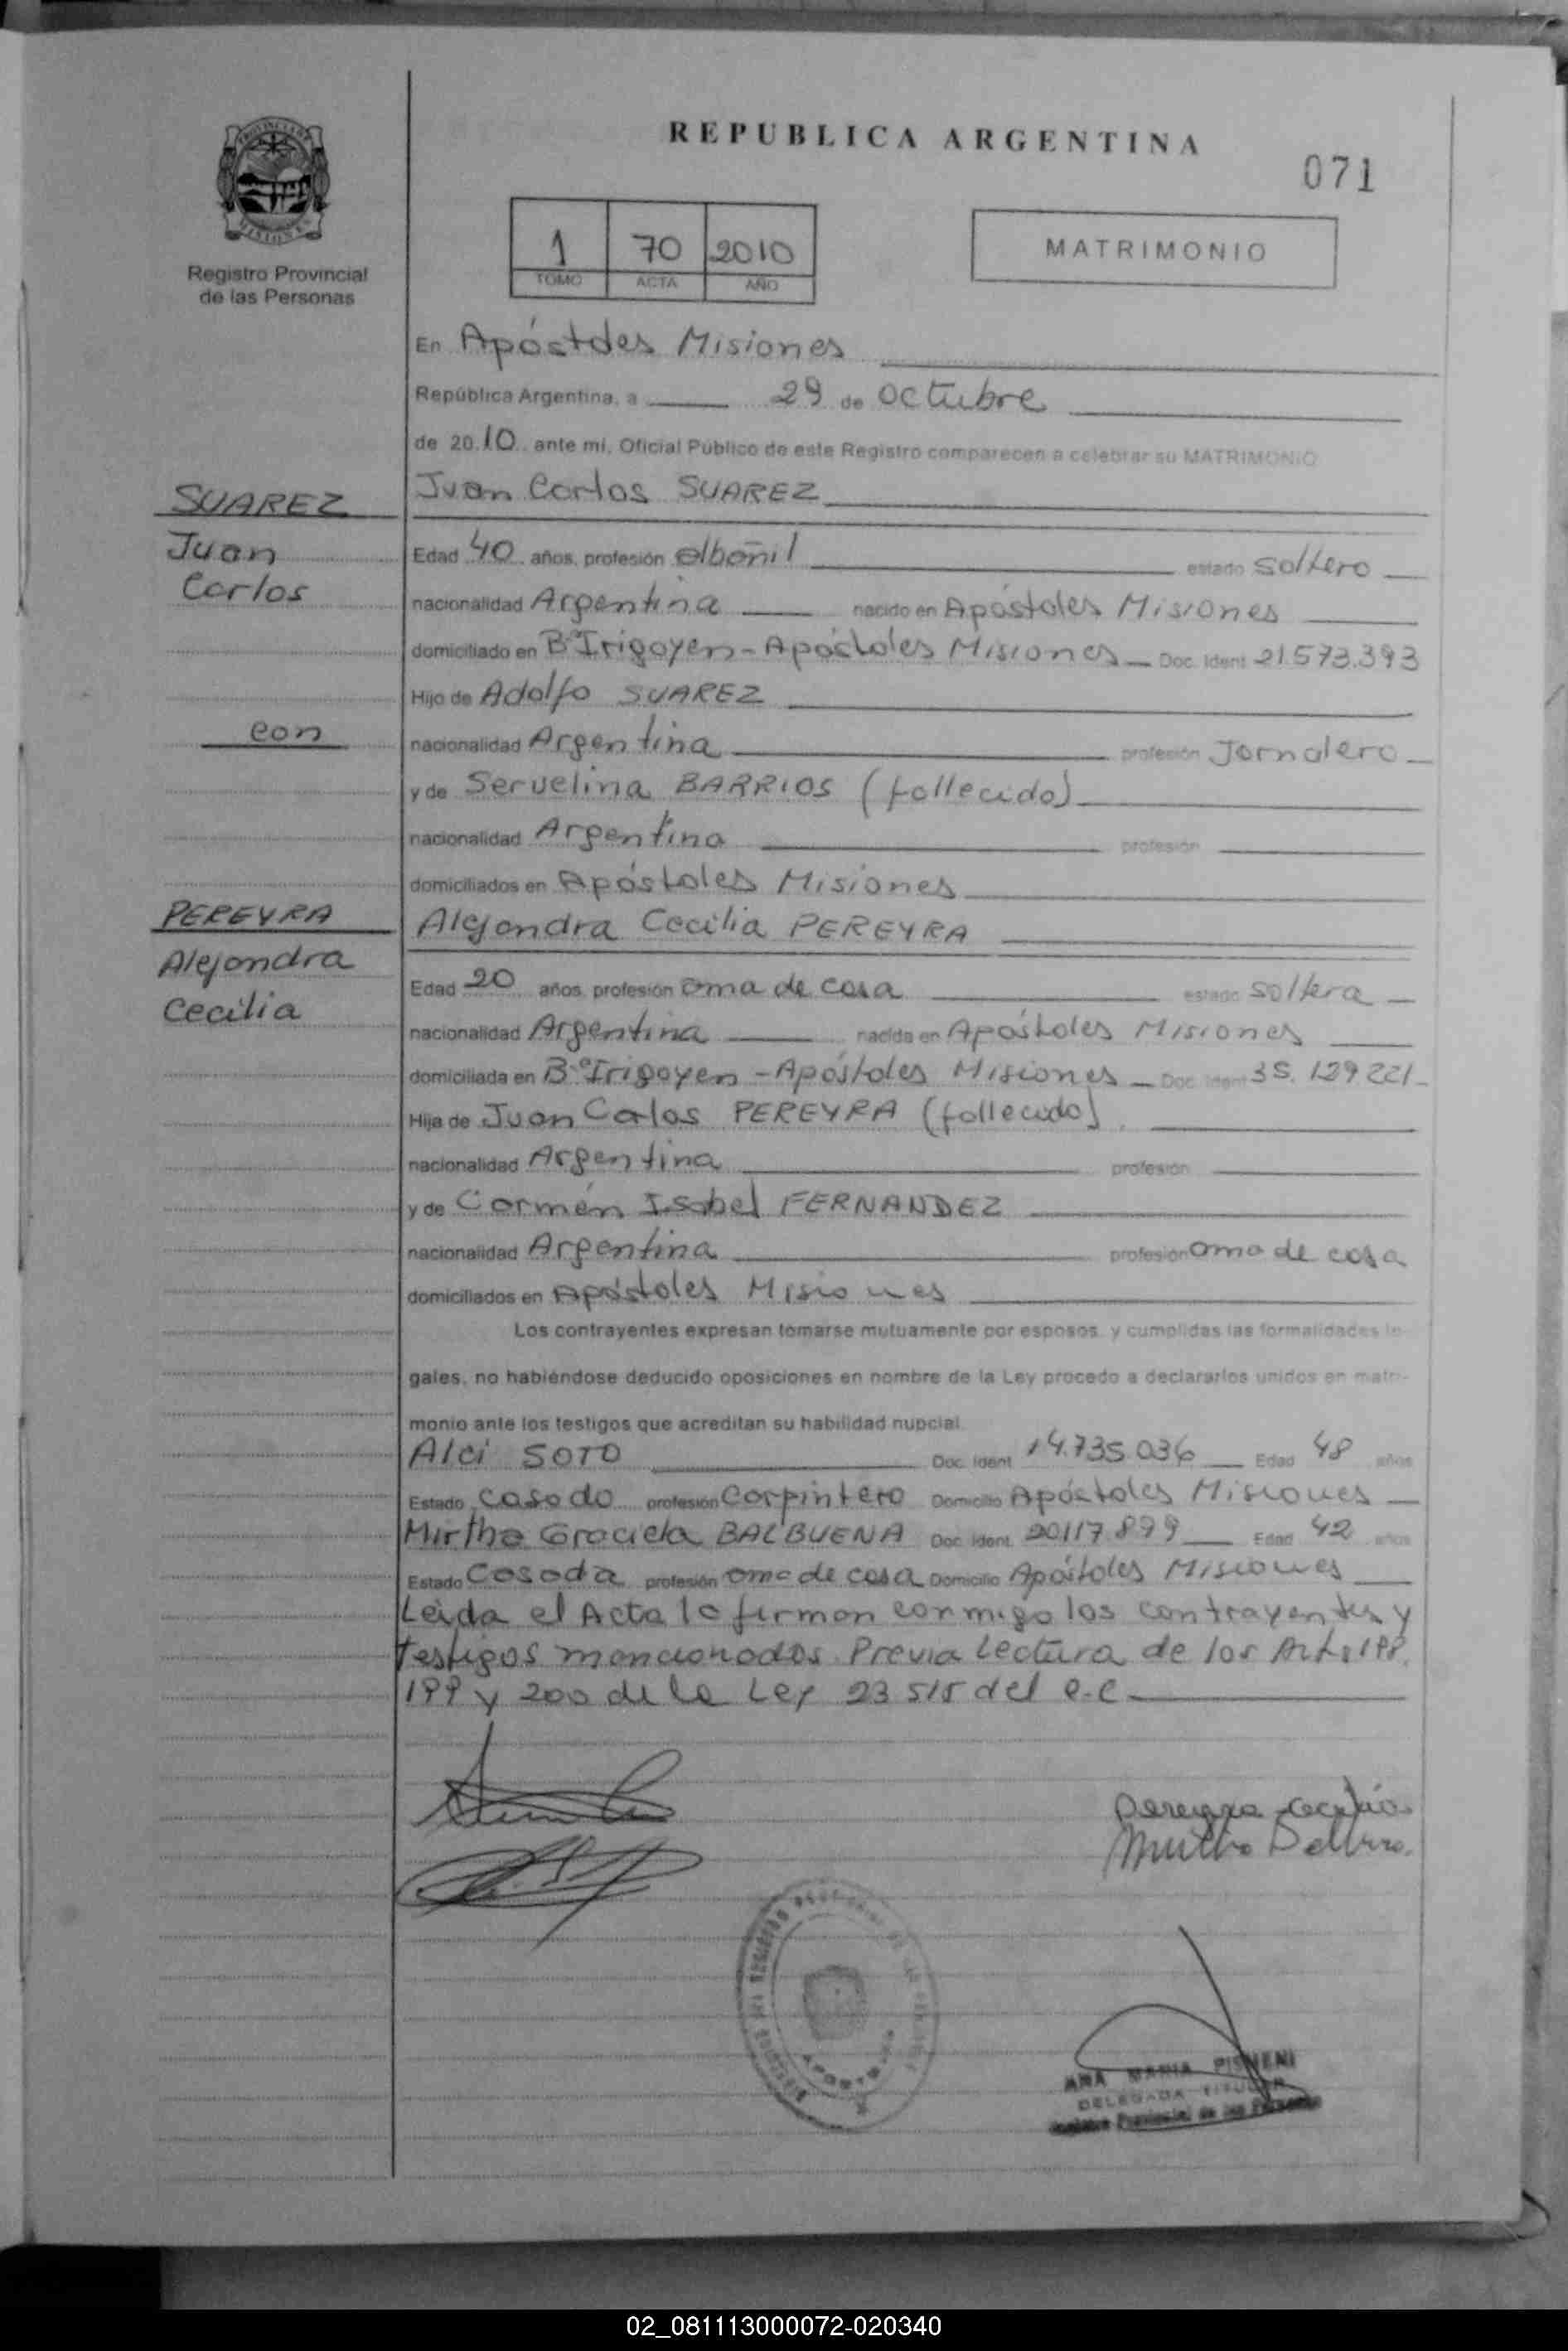 REPUBLICA ARGENTINA
071
PROVINCIA DE
MISIONES
Registro Provincial
de las Personas
1 70 2010
TOMO ACTA AÑO
MATRIMONIO
En Apóstoles Misiones
República Argentina, a 29 de octubre
de 2010 ante mi, Oficial Público de este Registro comparecen a celebrar su MATRIMONIO
SUAREZ
Juan
Carlos
Juan Carlos SUAREZ
Edad 40 años, profesión albañil estado soltero
nacionalidad Argentina nacido en Apóstoles Misiones
domiciliado en Bº Irigoyen - Apóstoles Misiones Doc. Ident 21.573.393
Hijo de Adolfo SUAREZ
con
nacionalidad Argentina profesión Jornalero
y de Servelina BARRIOS (fallecida)
nacionalidad Argentina profesión
domiciliados en Apóstoles Misiones
PEREYRA
Alejandra
Cecilia
Alejandra Cecilia PEREYRA
Edad 20 años, profesión ama de casa estado soltera
nacionalidad Argentina nacida en Apóstoles Misiones
domiciliada en Bº Irigoyen - Apóstoles Misiones Doc. Ident 35.129221
Hija de Juan Carlos PEREYRA (fallecido)
nacionalidad Argentina profesión
y de Carmen Isabel FERNANDEZ
nacionalidad Argentina profesión ama de casa
domiciliados en Apóstoles Misiones
Los contrayentes expresan tomarse mutuamente por esposos, y cumplidas las formalidades le-
gales, no habiéndose deducido oposiciones en nombre de la Ley procedo a declararlos unidos en matri-
monio ante los testigos que acreditan su habilidad nupcial.
Alci SOTO Doc. Ident 14.735.036 Edad 48 años
Estado Casado profesión Carpintero Domicilio Apóstoles Misiones
Mirtha Graciela BALBUENA Doc. Ident. 20117.899 Edad 42 años
Estado Casada profesión ama de casa Domicilio Apóstoles Misiones
Leída el Acta la firman conmigo los contrayentes y
testigos mencionados. Previa Lectura de los Arts 198,
199 y 200 de la Ley 23 515 del C.C.
Pereyra Cecilia
ANA MARIA
DELEGADA TITULAR
Registro Provincial de las Personas
02_081113000072-020340